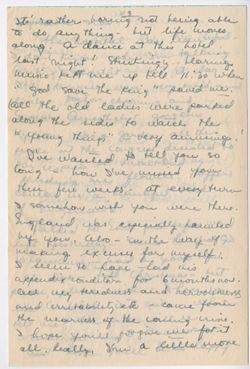 It's rather boring not being able
to do anything but life moves
along. A dance at this hotel
last night! Blaring
music kept me up till 11:30 when
"God save the King" saved me.
All the old ladies were parked
along the sides to watch the
"young things" very amusing.
I've wanted to tell you so
long how I've missed you
these few weeks - at every turn
I somehow wish you were there.
England was especially haunted
by you. Also - in the way of
making excuses for myself:
I seem to have had this
appendix condition for 6 months now
all my tiredness and nervousness
and irritability, etc - came from
the nearness of the coming crisis.
I hope you'll forgive me for it
all, really, I'm a little more